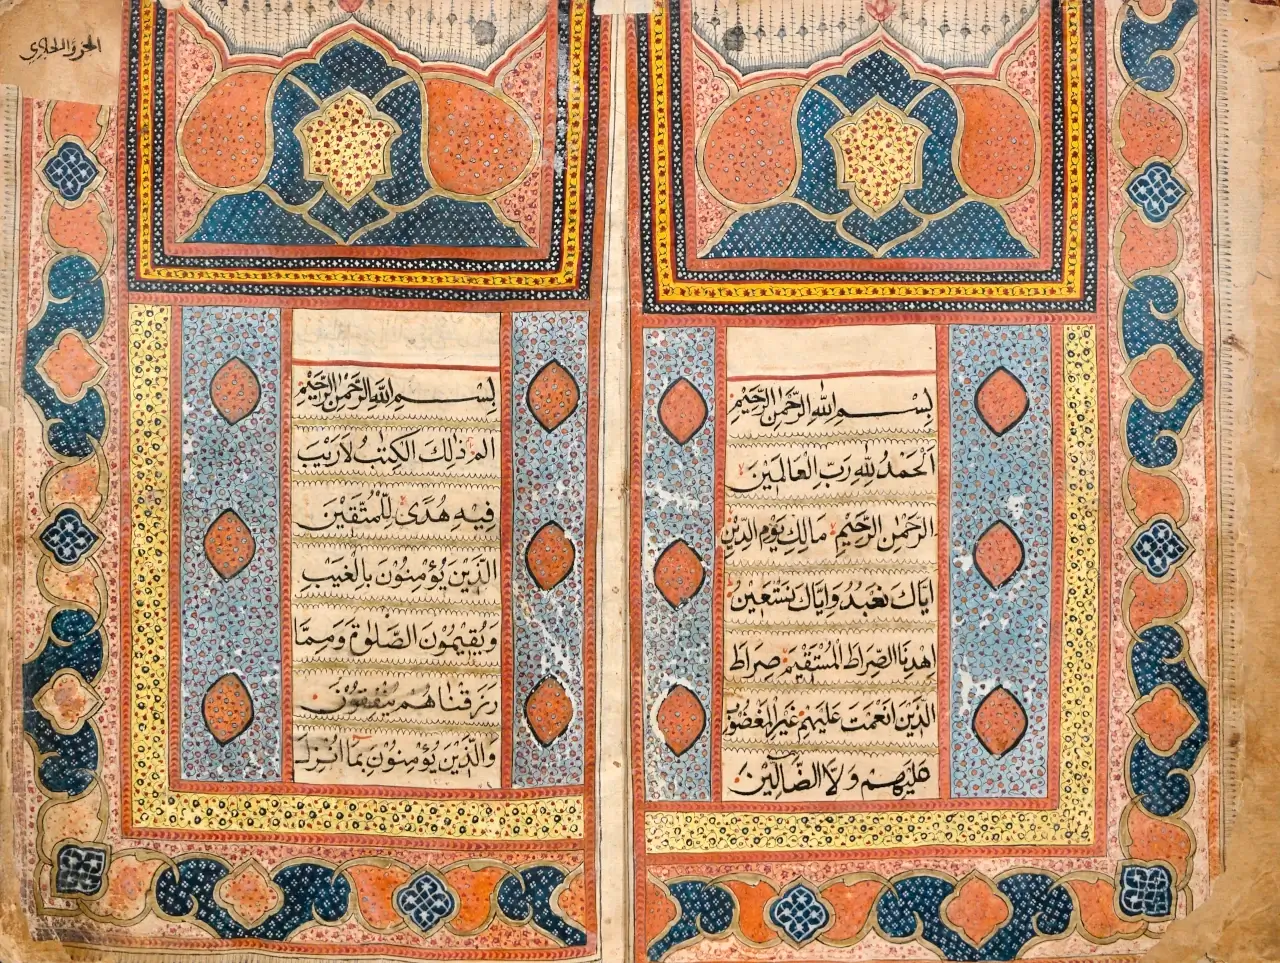 بِسْمِ اللهِ الرَّحْمٰنِ الرَّحِيْمِ
اَلْحَمْدُ لِلّٰهِ رَبِّ الْعَالَمِيْنَ
الرَّحْمٰنِ الرَّحِيْمِ مَالِكِ يَوْمِ الدِّيْنِ
اِيَّاكَ نَعْبُدُ وَاِيَّاكَ نَسْتَعِيْنُ
اِهْدِنَا الصِّرَاطَ الْمُسْتَقِيْمَ صِرَاطَ
الَّذِيْنَ اَنْعَمْتَ عَلَيْهِمْ غَيْرِ الْمَغْضُوْبِ
عَلَيْهِمْ وَلَا الضَّالِّيْنَ
بِسْمِ اللهِ الرَّحْمٰنِ الرَّحِيْمِ
الم ذٰلِكَ الْكِتٰبُ لَا رَيْبَ
فِيْهِ هُدًى لِّلْمُتَّقِيْنَ
الَّذِيْنَ يُؤْمِنُوْنَ بِالْغَيْبِ
وَيُقِيْمُوْنَ الصَّلٰوةَ وَمِمَّا
رَزَقْنَاهُمْ يُنْفِقُوْنَ
وَالَّذِيْنَ يُؤْمِنُوْنَ بِمَا اُنْزِلَ